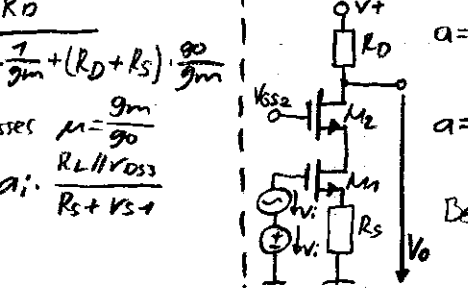 RD
1/gm + (RD + RS) · go/gm
μ = gm/go
ai · RL // rDS3 / RS + rS1
V+
RD
VGS2
M2
M1
vi
vi
RS
Vo
a=
a=